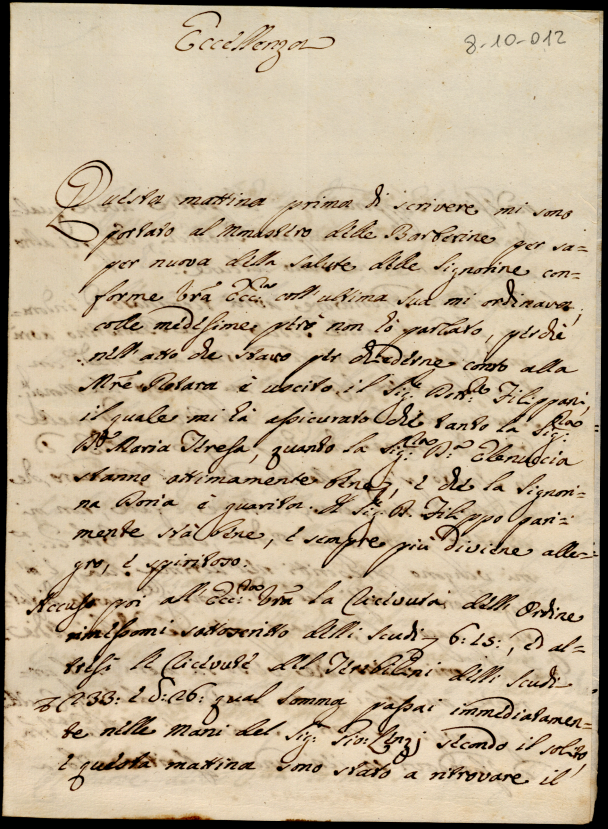 Eccellenza
8-10-012
Questa mattina prima di scrivere mi sono
portato al Monastro delle Barberine per sa=
per nuova della salute delle Signorine con=
forme Vrã Ecc.za coll'ultima sua mi ordinava,
colle medesime però non hò parlato, perche
nell'atto che stavo per chiederne conto alla
Mrẽ Rotara è uscito il Sig.r Filippani,
il quale mi hà assicurato che tanto la Sig.ra
D.a Maria Teresa, quanto la Sig.ra D.a Elenuccia
stanno ottimamente bene, e che la Signori=
na Doria è guarita. Il Sig.r D. Filippo pari=
mente stà bene, e sempre più diviene alle=
gro, e spiritoso.
Accuso poi all'Ecc.za Vrã la ricevuta dell'Ordine
rimessomi sottoscritto delli scudi 6:15:, ed al=
tresì le ricevute del delli scudi
233: e d: 26: qual somma passai immediatamen=
te nelle mani del Sig.r Gio: Lenzi secondo il solito,
e questa mattina sono stato a ritrovare il